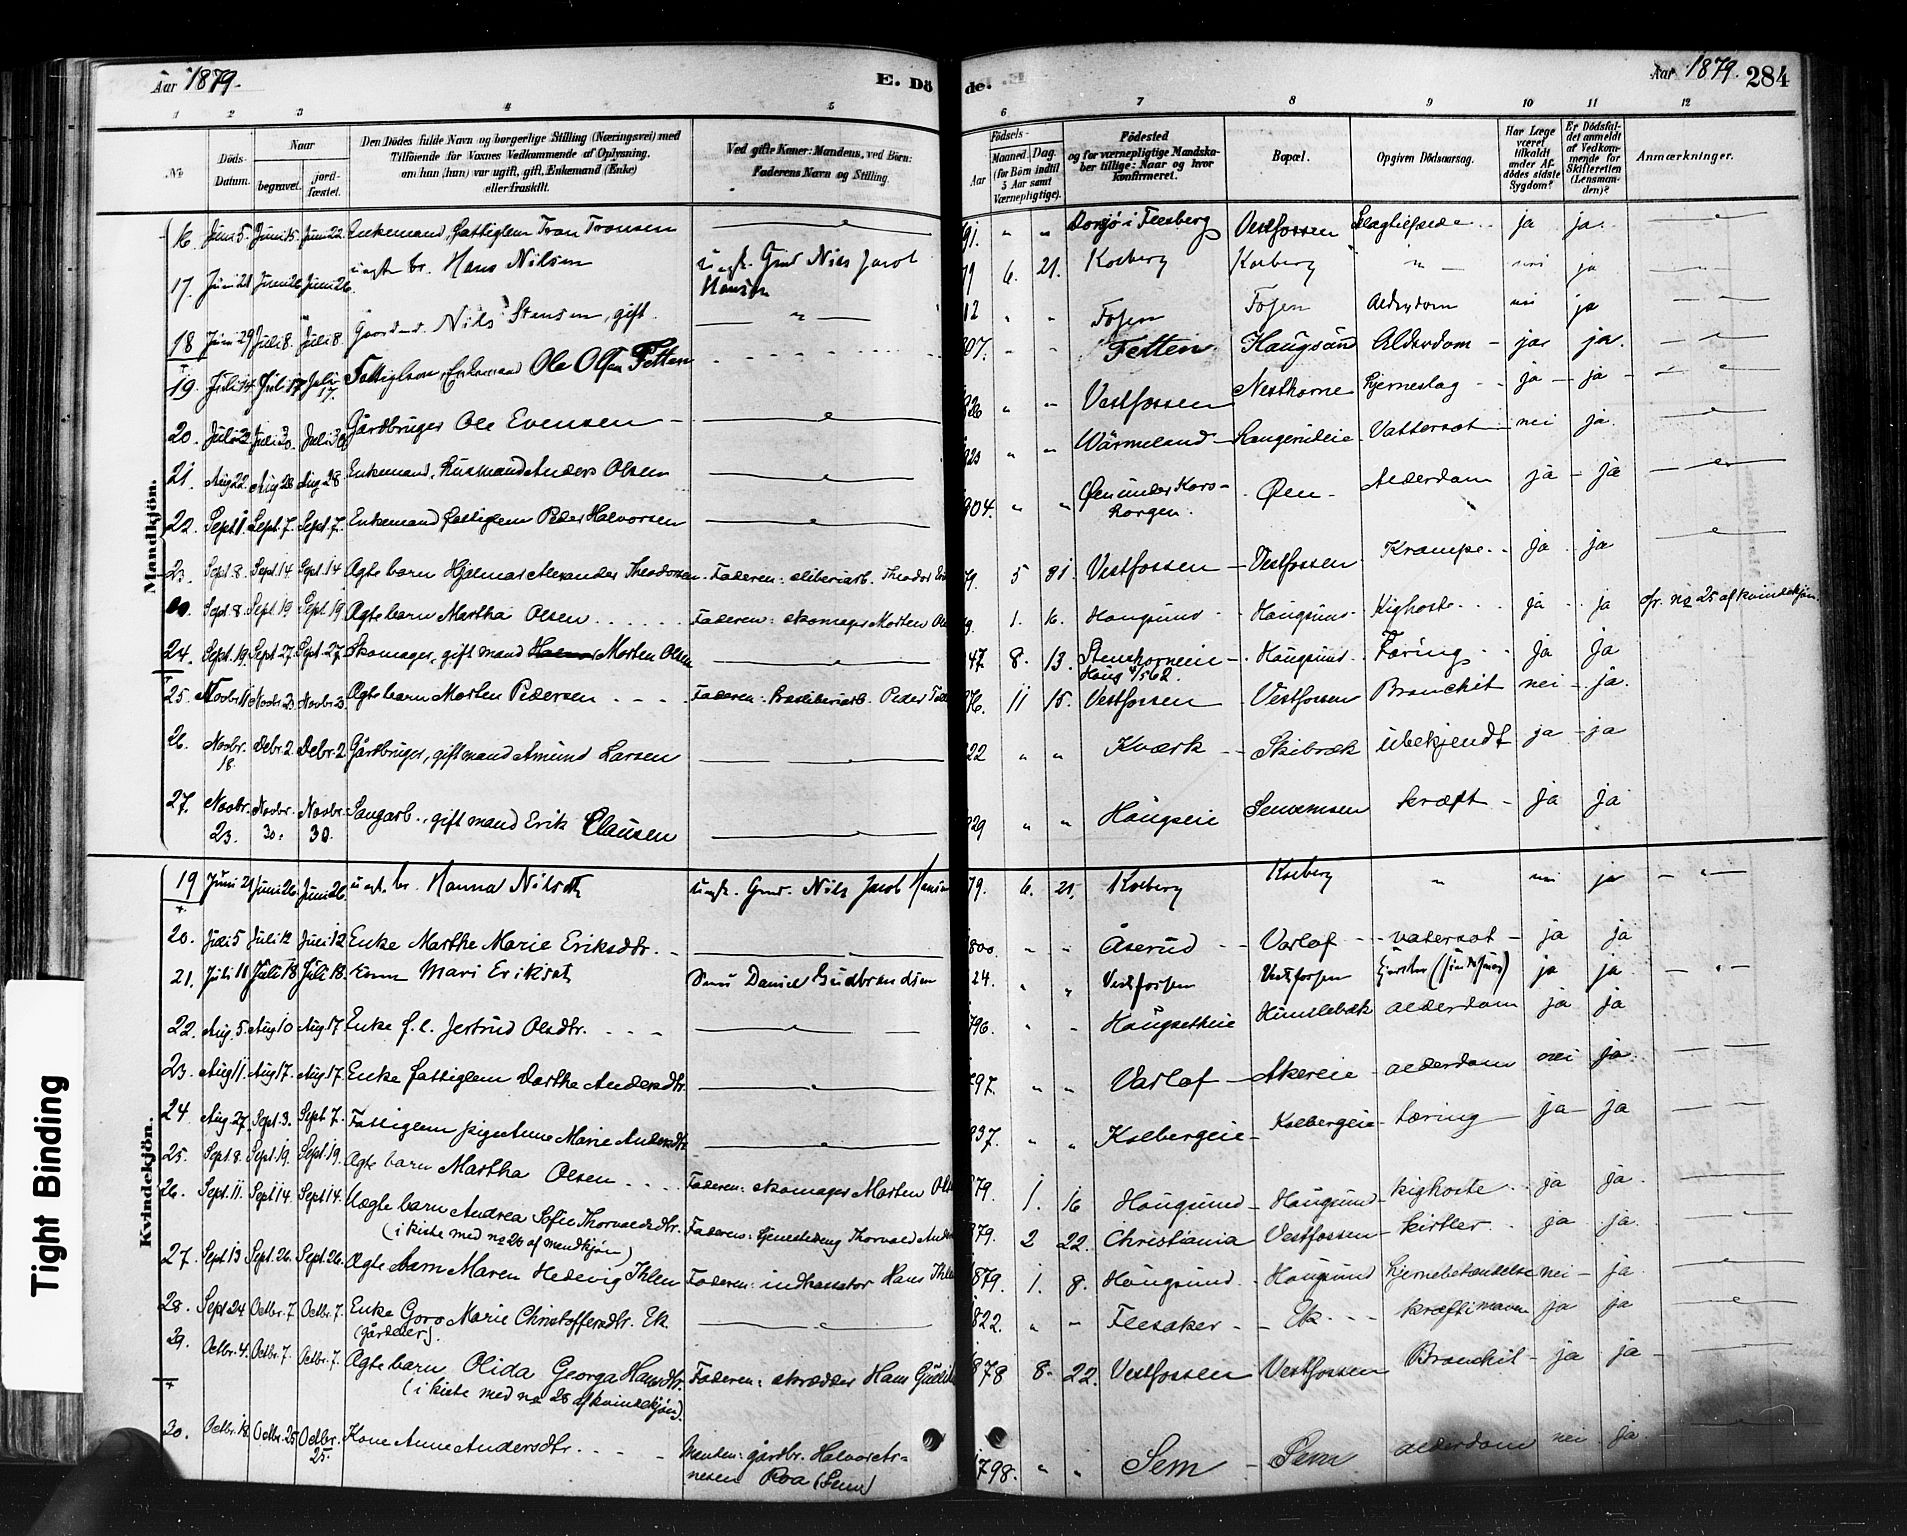 Aar 1879.
E. Dö
de.
Aar 1879. 284
1 2 3 4 5 6 7 8 9 10 11 12
No
Döds-
Datum.
Naar
begravet.
jord-
fæstet.
Den Dödes fulde Navn og borgerlige Stilling (Næringsvei) med
Tilföiende for Voxnes Vedkommende af Oplysning,
om han (hun) var ugift, gift, Enkemand (Enke)
eller fraskilt.
Ved gifte Koner: Mandens, ved Börn:
Faderens Navn og Stilling.
Födsels-
Aar
Maaned. Dag.
(for Börn indtil
5 Aar samt
Værnepligtige).
Födested
og for værnepligtige Mandska-
ber tillige: Naar og hvor
konfirmeret.
Bopæl.
Opgiven Dödsaarsag.
Har Læge
været
tilkaldt
under Af-
dödes sidste
Sygdom?
Er Dödsfal-
det anmeldt
af Vedkom-
mende for
Skifteretten
(Lensman-
den)?
Anmærkninger.
Mandkjön.
16. Juni 5. Juni 15. Juni 22. Enkemand, fattiglem Tron Tronsen 91. " " i Flesberg Vestfossen ja ja.
17. Juni 21 Juni 26. Juni 26. br. Hans Nilsen Nils Jacob
Hansen 79 6. 21. Kolberg Kolberg " ja
18 Juni 29 Juli 8. Juli 8. Nils Stensen, gift. 12 " " Fosen Fosen Alderdom ja
19 Juli 14 Juli 17 Juli 17. Enkemand Ole Olsen Fetten 807. " " Fetten Haugsund Alderdom - ja ja.
20. Juli 30. Juli 30 Gårdbruger Ole Evensen 826 " " Vestfossen Hjerneslag ja ja
21. Aug 22. Aug 28 Aug 28 Enkemand, Husmand Anders Olsen " " Wärmeland Vattersot nei ja.
22. Sept 1. Sept. 7. Sept. 7. Enkemand fattiglem Peder Halvorsen 804. " " Øen under Kors-
korgen. Øen Alderdom ja ja
23. Sept. 8. Sept 14 Sept. 14 Ægte barn Hjalmar Alexander Theodorsen Faderen: sliberiarb. Theodor 79. 5 31. Vestfossen Vestfossen Krampe ja ja
Sept. 8. Sept. 19 Sept. 19 Ægte barn Martha Olsen Faderen: skomager Morten 1. 16. Hougsund Hougsund Kighoste ja ja cfr. no 25 af kvindekjön.
24. Sept. 19. Sept 27. Sept. 27. Skomager, gift mand Morten Olsen 47. 8. 13. Hougsund Tæring ja ja
25. Novbr. 16 Novbr. 23. Novbr. 23. Ægte barn Morten Pedersen Faderen: Peder 876. 11 15. Vestfossen Vestfossen Bronchit nei ja.
26. Novbr.
18. Debr. 2 Debr. 2 Gårdbruger, gift mand Amund Larsen 822 " " Kværk Skibræk ubekjendt ja ja
27. Novbr.
23. Novbr.
30. Novbr.
30. Saugarb., gift mand Erik Clausen 829 " " Hougseie kræft ja ja
Kvindekjön.
19 Juni 21 Juni 26. Juni 26 br. Hanna Nilsdt Nils Jacob Hansen 79. 6. 21. Kolberg Kolberg " ja
20. Juli 5 Juli 12 Juli 12 Enke Marthe Marie Eriksdtr. 800 " " Åserud Varlof vatersot ja ja
21. Juli 11 Juli 18 Juli 18. Mari Eriksdt Daniel Gudbrandsen 24. " " Vestfossen Vestfossen ja ja
22. Aug. 5. Aug 10 Aug 17 Enke f. l. Jertrud Olsdtr. 796. " " Hougsetheie alderdom ja ja
23. Aug 11. Aug 17. Aug 17 Enke fattiglem Dorthe Andersdtr. 797. " " Varlof Akereie alderdom nei ja
24 Aug. 27. Sept. 3. Sept. 7. Fattiglem pige Anne Marie Andersdtr. 837. " " Kolbergeie Kolbergeie tæring ja ja
25. Sept. 8. Sept. 19. Sept. 19. Ægte barn Martha Olsen Faderen: skomager Morten 879. 1. 16 Hougsund Hougsund kighoste ja ja.
26. Sept. 11. Sept 14. Sept 14. Uægte barn Andrea Sofie Thorvaldsdtr.
(i kiste med no 20 af mandkjön) Faderens: Thorvald 879. 2 22. Christiania Vestfossen kirtler ja ja.
27. Sept 13 Sept. 26. Sept. 26. Ægte barn Maren Hedevig Ihlen Faderen: indkassator Hans Ihlen 1879. 1. 8. Hougsund Hougsund Hjernebetændelse nei ja
28. Sept 24 Octbr. 7 Octbr. 7. Enke Goro Marie Christoffersdtr. Ek
(gårdeier). 822. " " Flesaker Ek kræft i maven ja ja
29. Octbr. 4. Octbr. 7. Octbr. 7. Ægte barn Olida Georga Hansdtr.
(i kiste med no 28 af kvindekjön). Faderen: skrædder Hans 1878 8. 22. Vestfossen Vestfossen Bronchit ja ja
30. Octbr. 18 Octbr. 25 Octbr.
25. Kone Anne Andersdtr. Manden: gårdbr. Halvor
Roa (Sem) 1798. " " Sem Sem alderdom nei ja.
Tight Binding